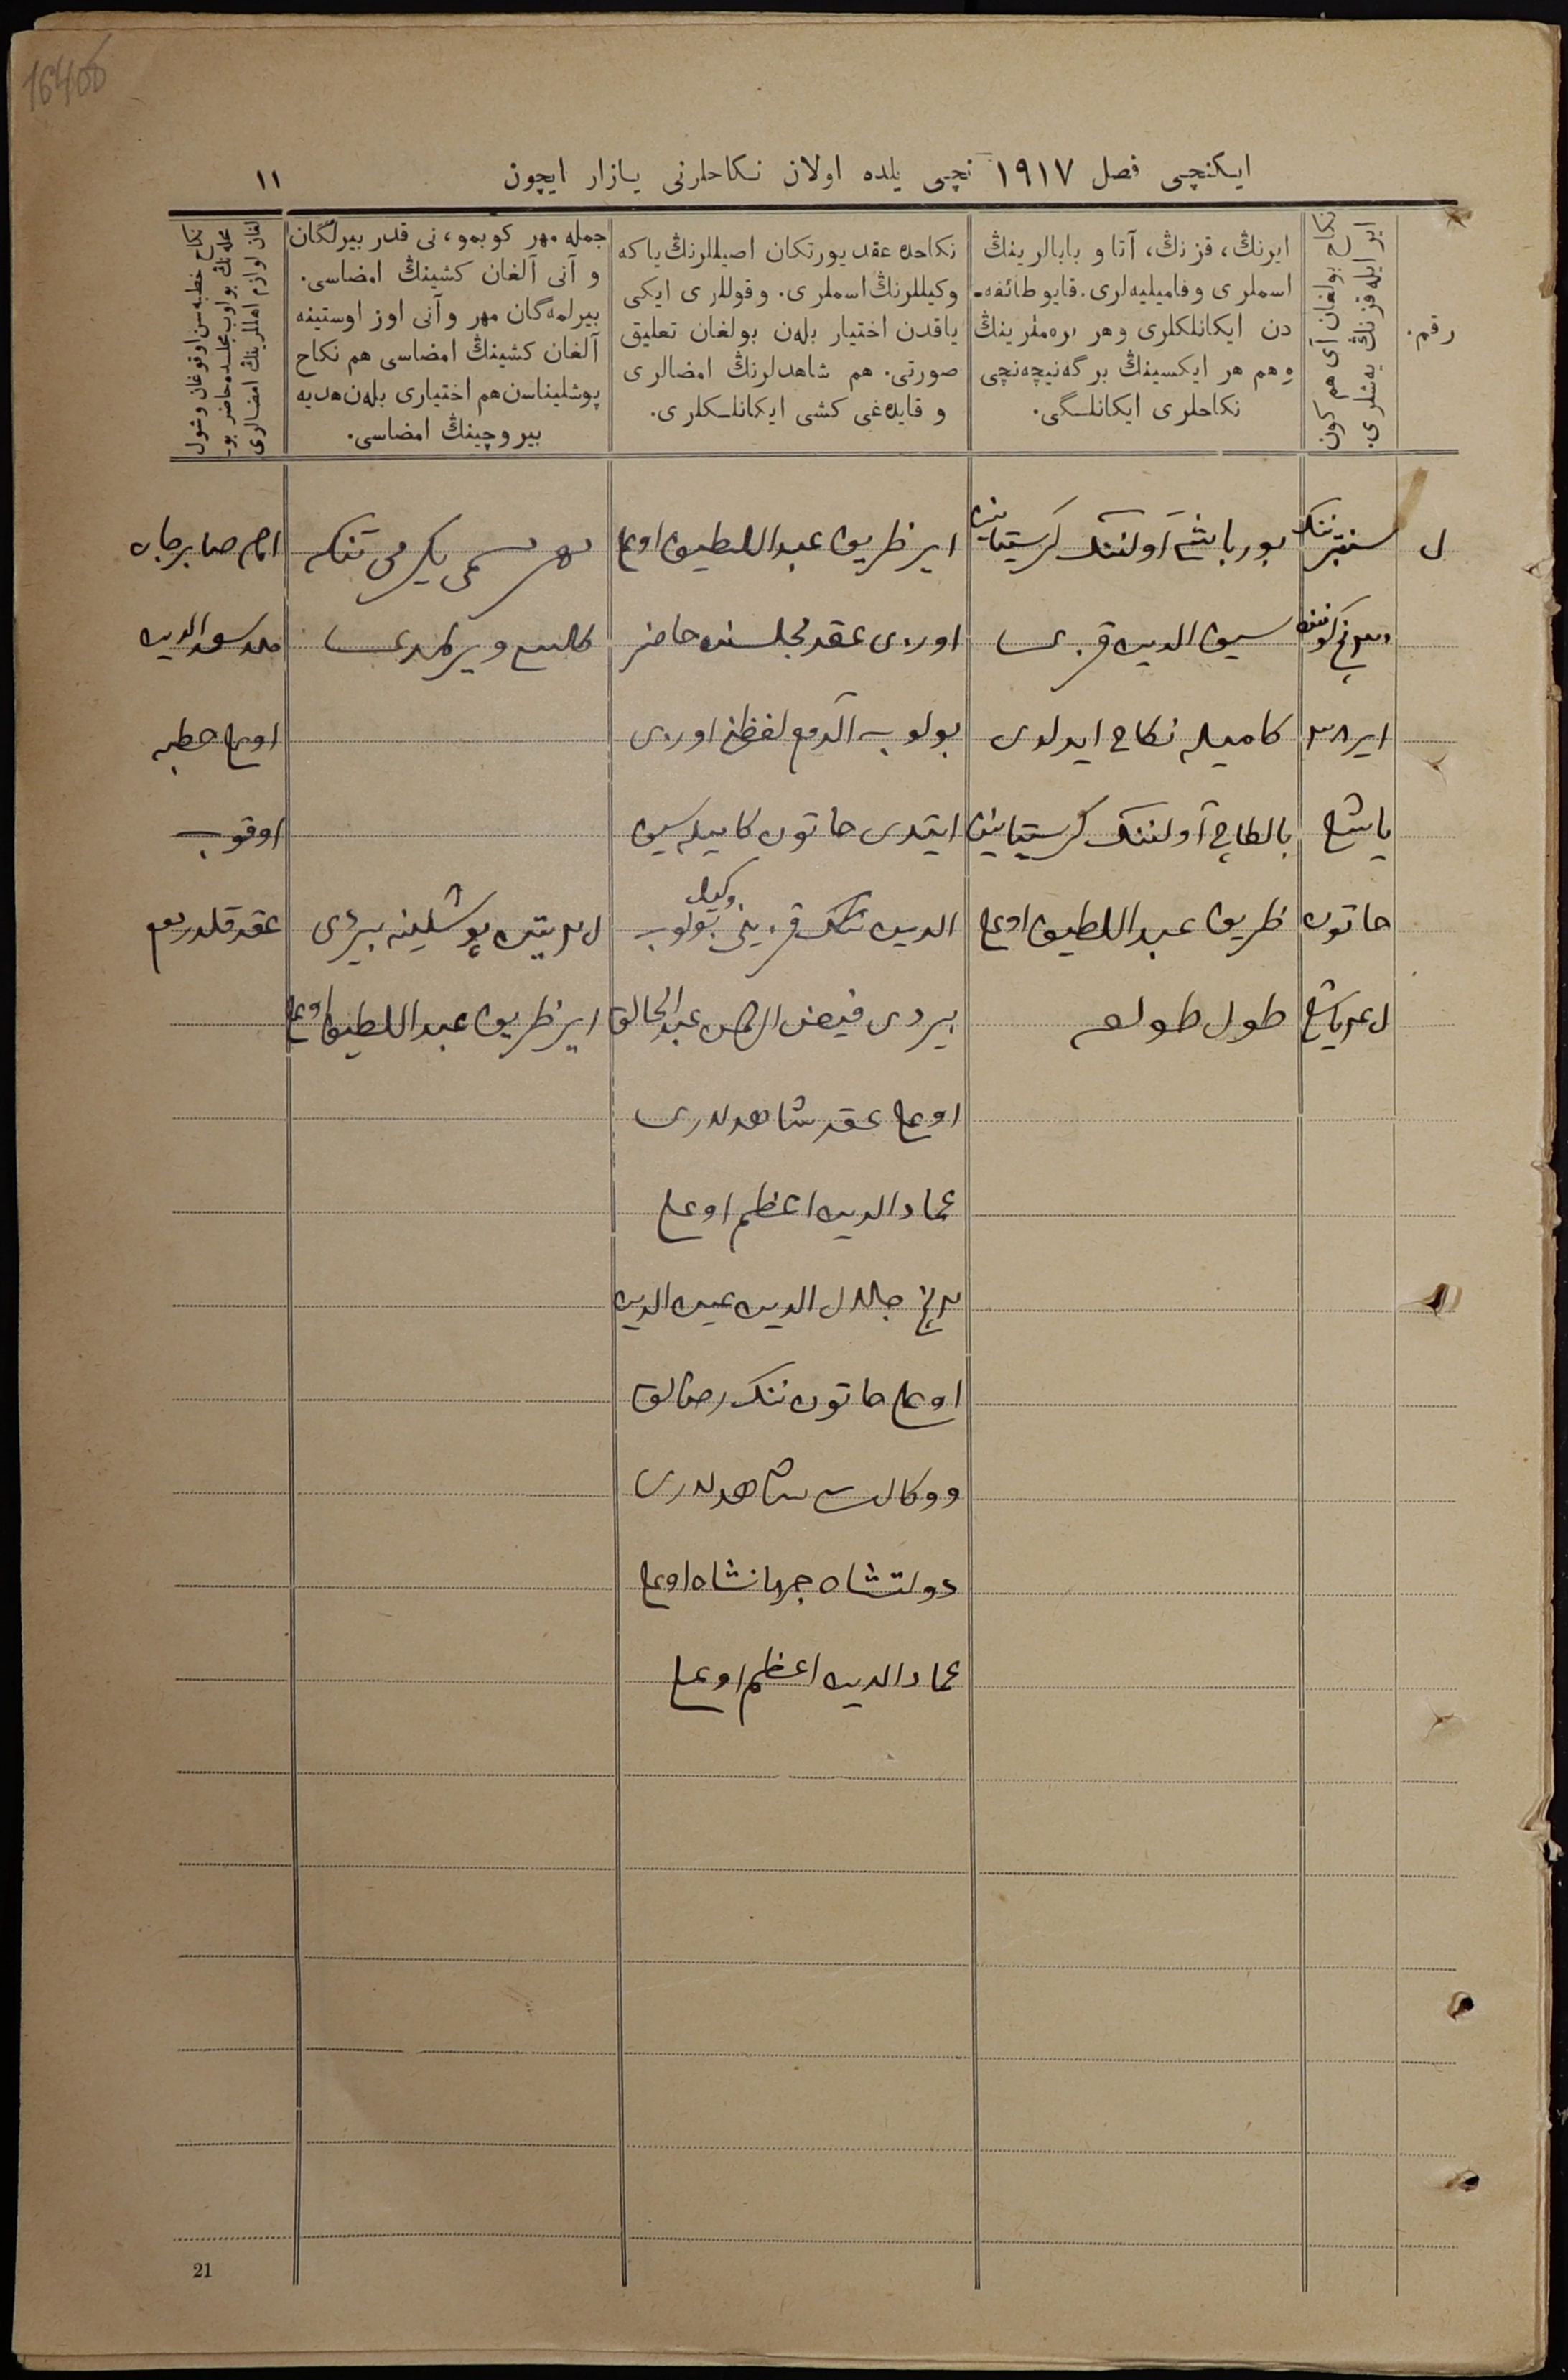 16406
ایکنچی فصل ١٩١٧ نچی یلده اولان نکاحلرنی یازار ایچون
١١
رقم.
نکاح بولغان آی هم کون
ایر ایله قزنڭ یه‌شلری.
ایرنڭ، قزنڭ، آتا و بابالرینڭ
اسملری وفامیلیه‌لری. قایو طائفه‌-
دن ایکانلکلری وهر بره‌ملرینڭ
وهم هر ایکسینڭ برگه‌نیچه‌نچی
نکاحلری ایکانلگی.
نکاحده عقد یورتکان اصیللرنڭ یاکه
وکیللرنڭ اسملری. وقوللری ایکی
یاقدن اختیار بله‌ن بولغان تعلیق
صورتی. هم شاهدلرنڭ امضالری
و قایده‌غی کشی ایکانلکلری.
جمله مهر کوبمو، نی قدر بیرلگان
و آنی آلغان کشینڭ امضاسی.
بیرلمه‌گان مهر وآنی اوز اوستینه
آلغان کشینڭ امضاسی هم نکاح
پوشلیناسن هم اختیاری بله‌ن هدیه
بیروچینڭ امضاسی.
نکاح خطبه‌سن اوقوغان وشول
محله‌نڭ بولوب مجلسده حاضر بو-
لغان لوازم اهللرینڭ امضالری
سنتبرننک
بورباش آولننک کرستیانین
ایر ظریف عبداللطیف اوغلی
مهر مسمی یکرمی تنکه
امام صابرجان
سیف الدین قزی
اوزی عقد مجلسنده حاضر
ایر ٣٨
کامیله نکاح ایدلدی
بولوب آلدم لفظنی اوزی
اوغلی خطبه
یاشلی
بالطاچ آولننک کرستیانین
ایتدی خاتون کامیله سیف
اوقوب
خاتون
ظریف عبداللطیف اوغلی
الدین ننک قزینی وکیل بولوب
پوشلینه بیردی
عقد قلدردم
یاشلی
طول طولغه
بیردی فیض الرحمن عبدالخالق
ایر ظریف عبداللطیف اوغلی
اوغلی عقد شاهدلری
عمادالدین اعظم اوغلی
جلال الدین عین الدین
اوغلی خاتون ننک رضالق
ووکالت شاهدلری
دولتشاه جهانشاه اوغلی
عمادالدین اعظم اوغلی
21